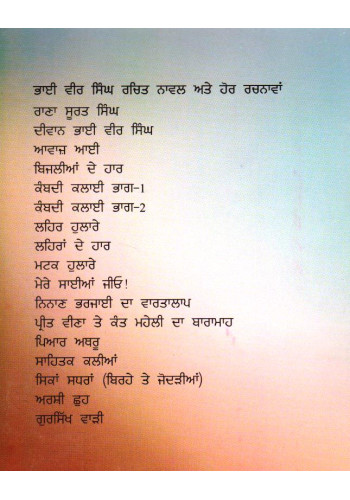 ਭਾਈ ਵੀਰ ਸਿੰਘ ਰਚਿਤ ਨਾਵਲ ਅਤੇ ਹੋਰ ਰਚਨਾਵਾਂ
ਰਾਣਾ ਸੂਰਤ ਸਿੰਘ
ਦੀਵਾਨ ਭਾਈ ਵੀਰ ਸਿੰਘ
ਆਵਾਜ਼ ਆਈ
ਬਿਜਲੀਆਂ ਦੇ ਹਾਰ
ਕੰਬਦੀ ਕਲਾਈ ਭਾਗ-1
ਕੰਬਦੀ ਕਲਾਈ ਭਾਗ-2
ਲਹਿਰ ਹੁਲਾਰੇ
ਲਹਿਰਾਂ ਦੇ ਹਾਰ
ਮਟਕ ਹੁਲਾਰੇ
ਮੇਰੇ ਸਾਈਆਂ ਜੀਓ!
ਨਿਨਾਣ ਭਰਜਾਈ ਦਾ ਵਾਰਤਾਲਾਪ
ਪ੍ਰੀਤ ਵੀਣਾ ਤੇ ਕੰਤ ਮਹੇਲੀ ਦਾ ਬਾਰਾਮਾਹ
ਪਿਆਰ ਅਥਰੂ
ਸਾਹਿਤਕ ਕਲੀਆਂ
ਸਿਕਾਂ ਸਧਰਾਂ (ਬਿਰਹੇ ਤੇ ਜੋਦੜੀਆਂ)
ਅਰਸ਼ੀ ਛੁਹ
ਗੁਰਸਿੱਖ ਵਾੜੀ